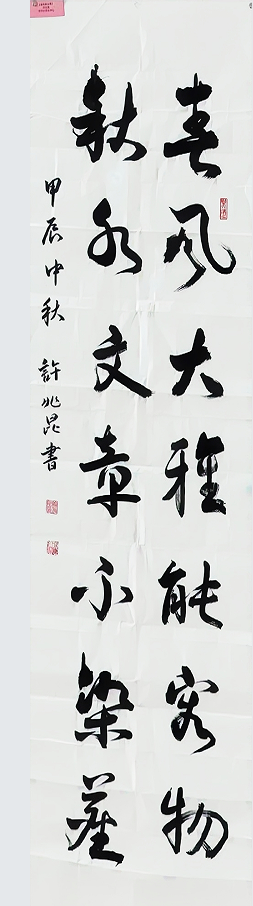 春风大雅能容物
秋水文章不染尘
甲辰中秋 許兆昆書